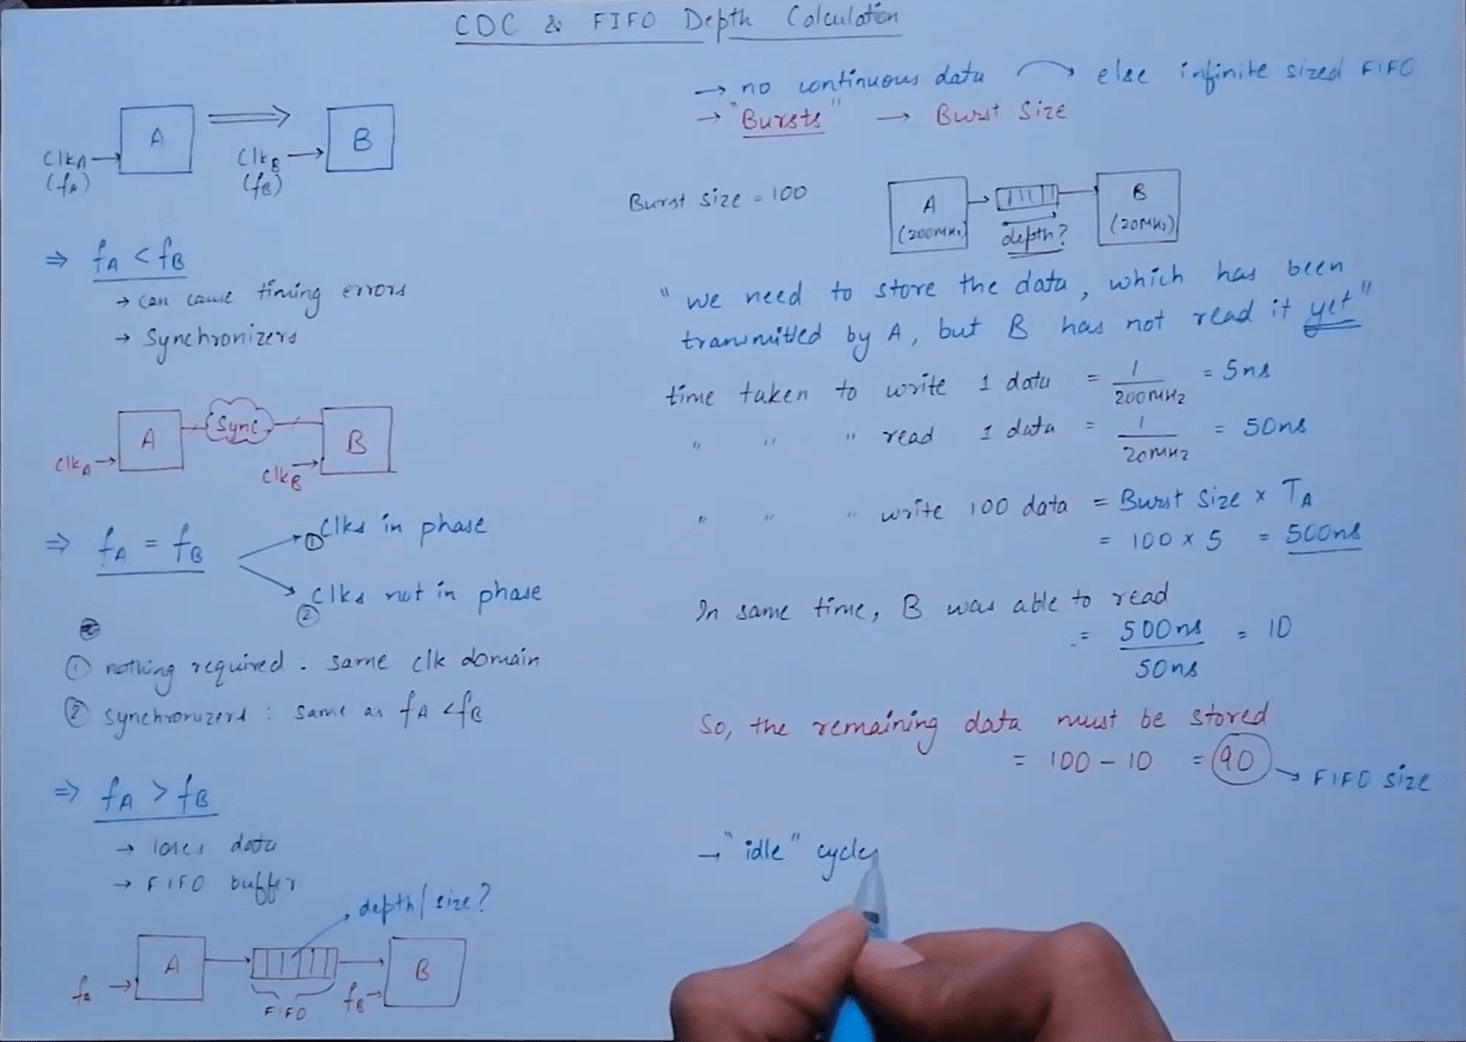 CDC & FIFO Depth Calculation
A
B
ClkA
(fA)
ClkB
(fB)
⇒ fA < fB
→ can cause timing errors
→ Synchronizers
A
Sync
B
ClkA
ClkB
⇒ fA = fB
① Clks in phase
② Clks not in phase
① nothing required : same clk domain
② synchronizers : same as fA < fB
⇒ fA > fB
→ loses data
→ FIFO buffer
depth/size?
A
B
FIFO
fB
→ no continuous data → else infinite sized FIFO
→ "Bursts" → Burst Size
Burst size = 100
A
(200MHz)
depth?
B
(20MHz)
"we need to store the data, which has been
transmitted by A, but B has not read it yet"
time taken to write 1 data = 1/200MHz = 5ns
" " " read 1 data = 1/20MHz = 50ns
" " " write 100 data = Burst Size × TA
= 100 × 5 = 500ns
In same time, B was able to read
= 500ns/50ns = 10
So, the remaining data must be stored
= 100 - 10 = 90 → FIFO size
→ "idle" cycles